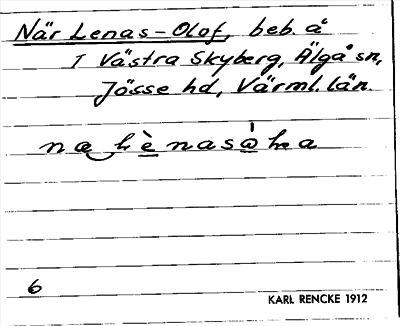 När Lenas-Olof, beb. å
1 Västra Skyberg, Älgå sn,
Jösse hd, Värml. län.
6
KARL RENCKE 1912